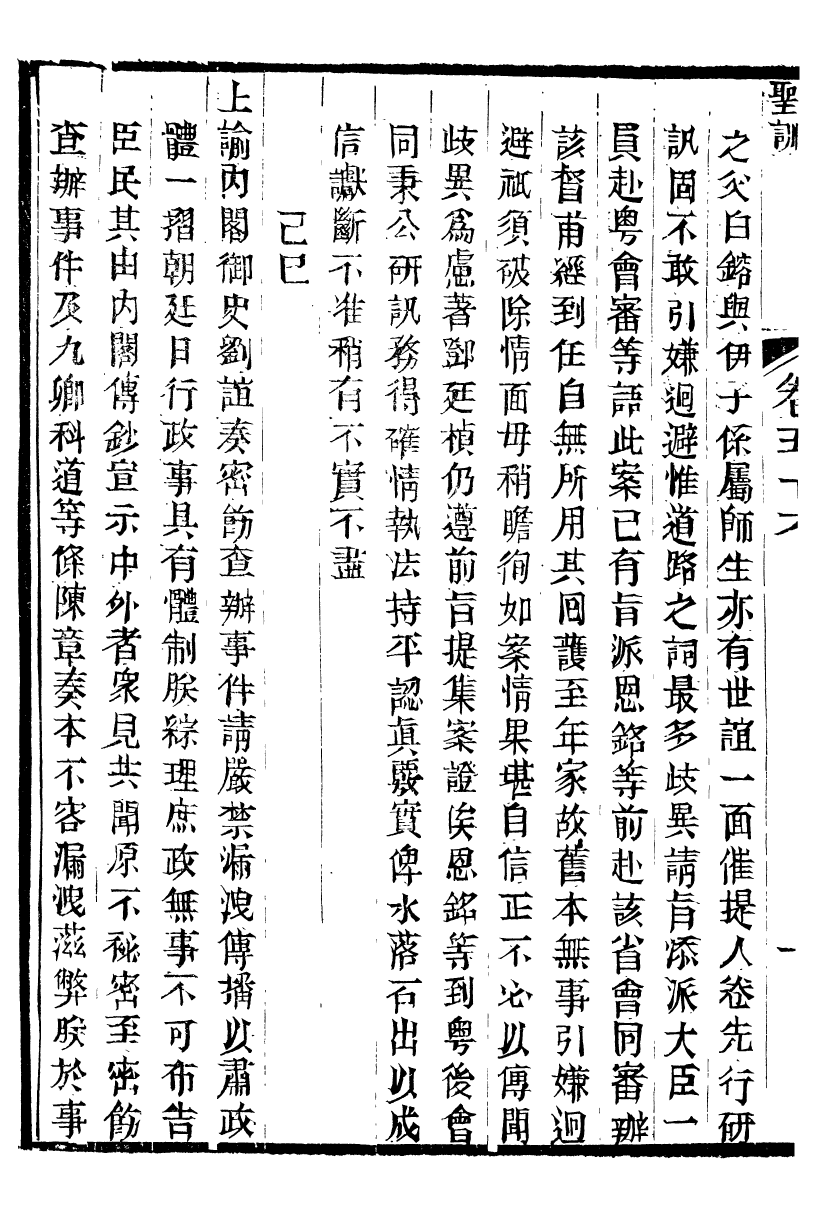 聖訓
卷五十六
一
之父白鎔與伊子係屬師生亦有世誼一面催提人卷先行研
訊固不敢引嫌迴避惟道路之詞最多歧異請旨添派大臣一
員赴粤會審等語此案已有旨派恩銘等前赴該省會同審辦
該督甫經到任自無所用其回護至年家故舊本無事引嫌迴
避祇須破除情面毋稍瞻徇如案情果堪自信正不必以傳聞
歧異爲慮著鄧廷楨仍遵前旨提集案證俟恩銘等到粤後會
同秉公研訊務得確情執法持平認眞覈實俾水落石出以成
信讞斷不准稍有不實不盡
己巳
上諭內閣御史劉誼奏密飭查辦事件請嚴禁漏洩傳播以肅政
體一摺朝廷日行政事具有體制朕綜理庶政無事不可布告
臣民其由內閣傳鈔宣示中外者衆見共聞原不祕密至密飭
查辦事件及九卿科道等條陳章奏本不容漏洩滋弊朕於事